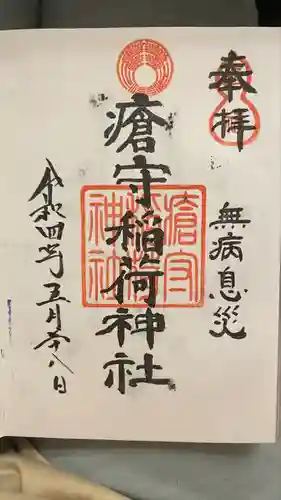 奉拝
無病息災
瘡守稲荷神社
瘡守稲荷神社
令和四年五月二十八日